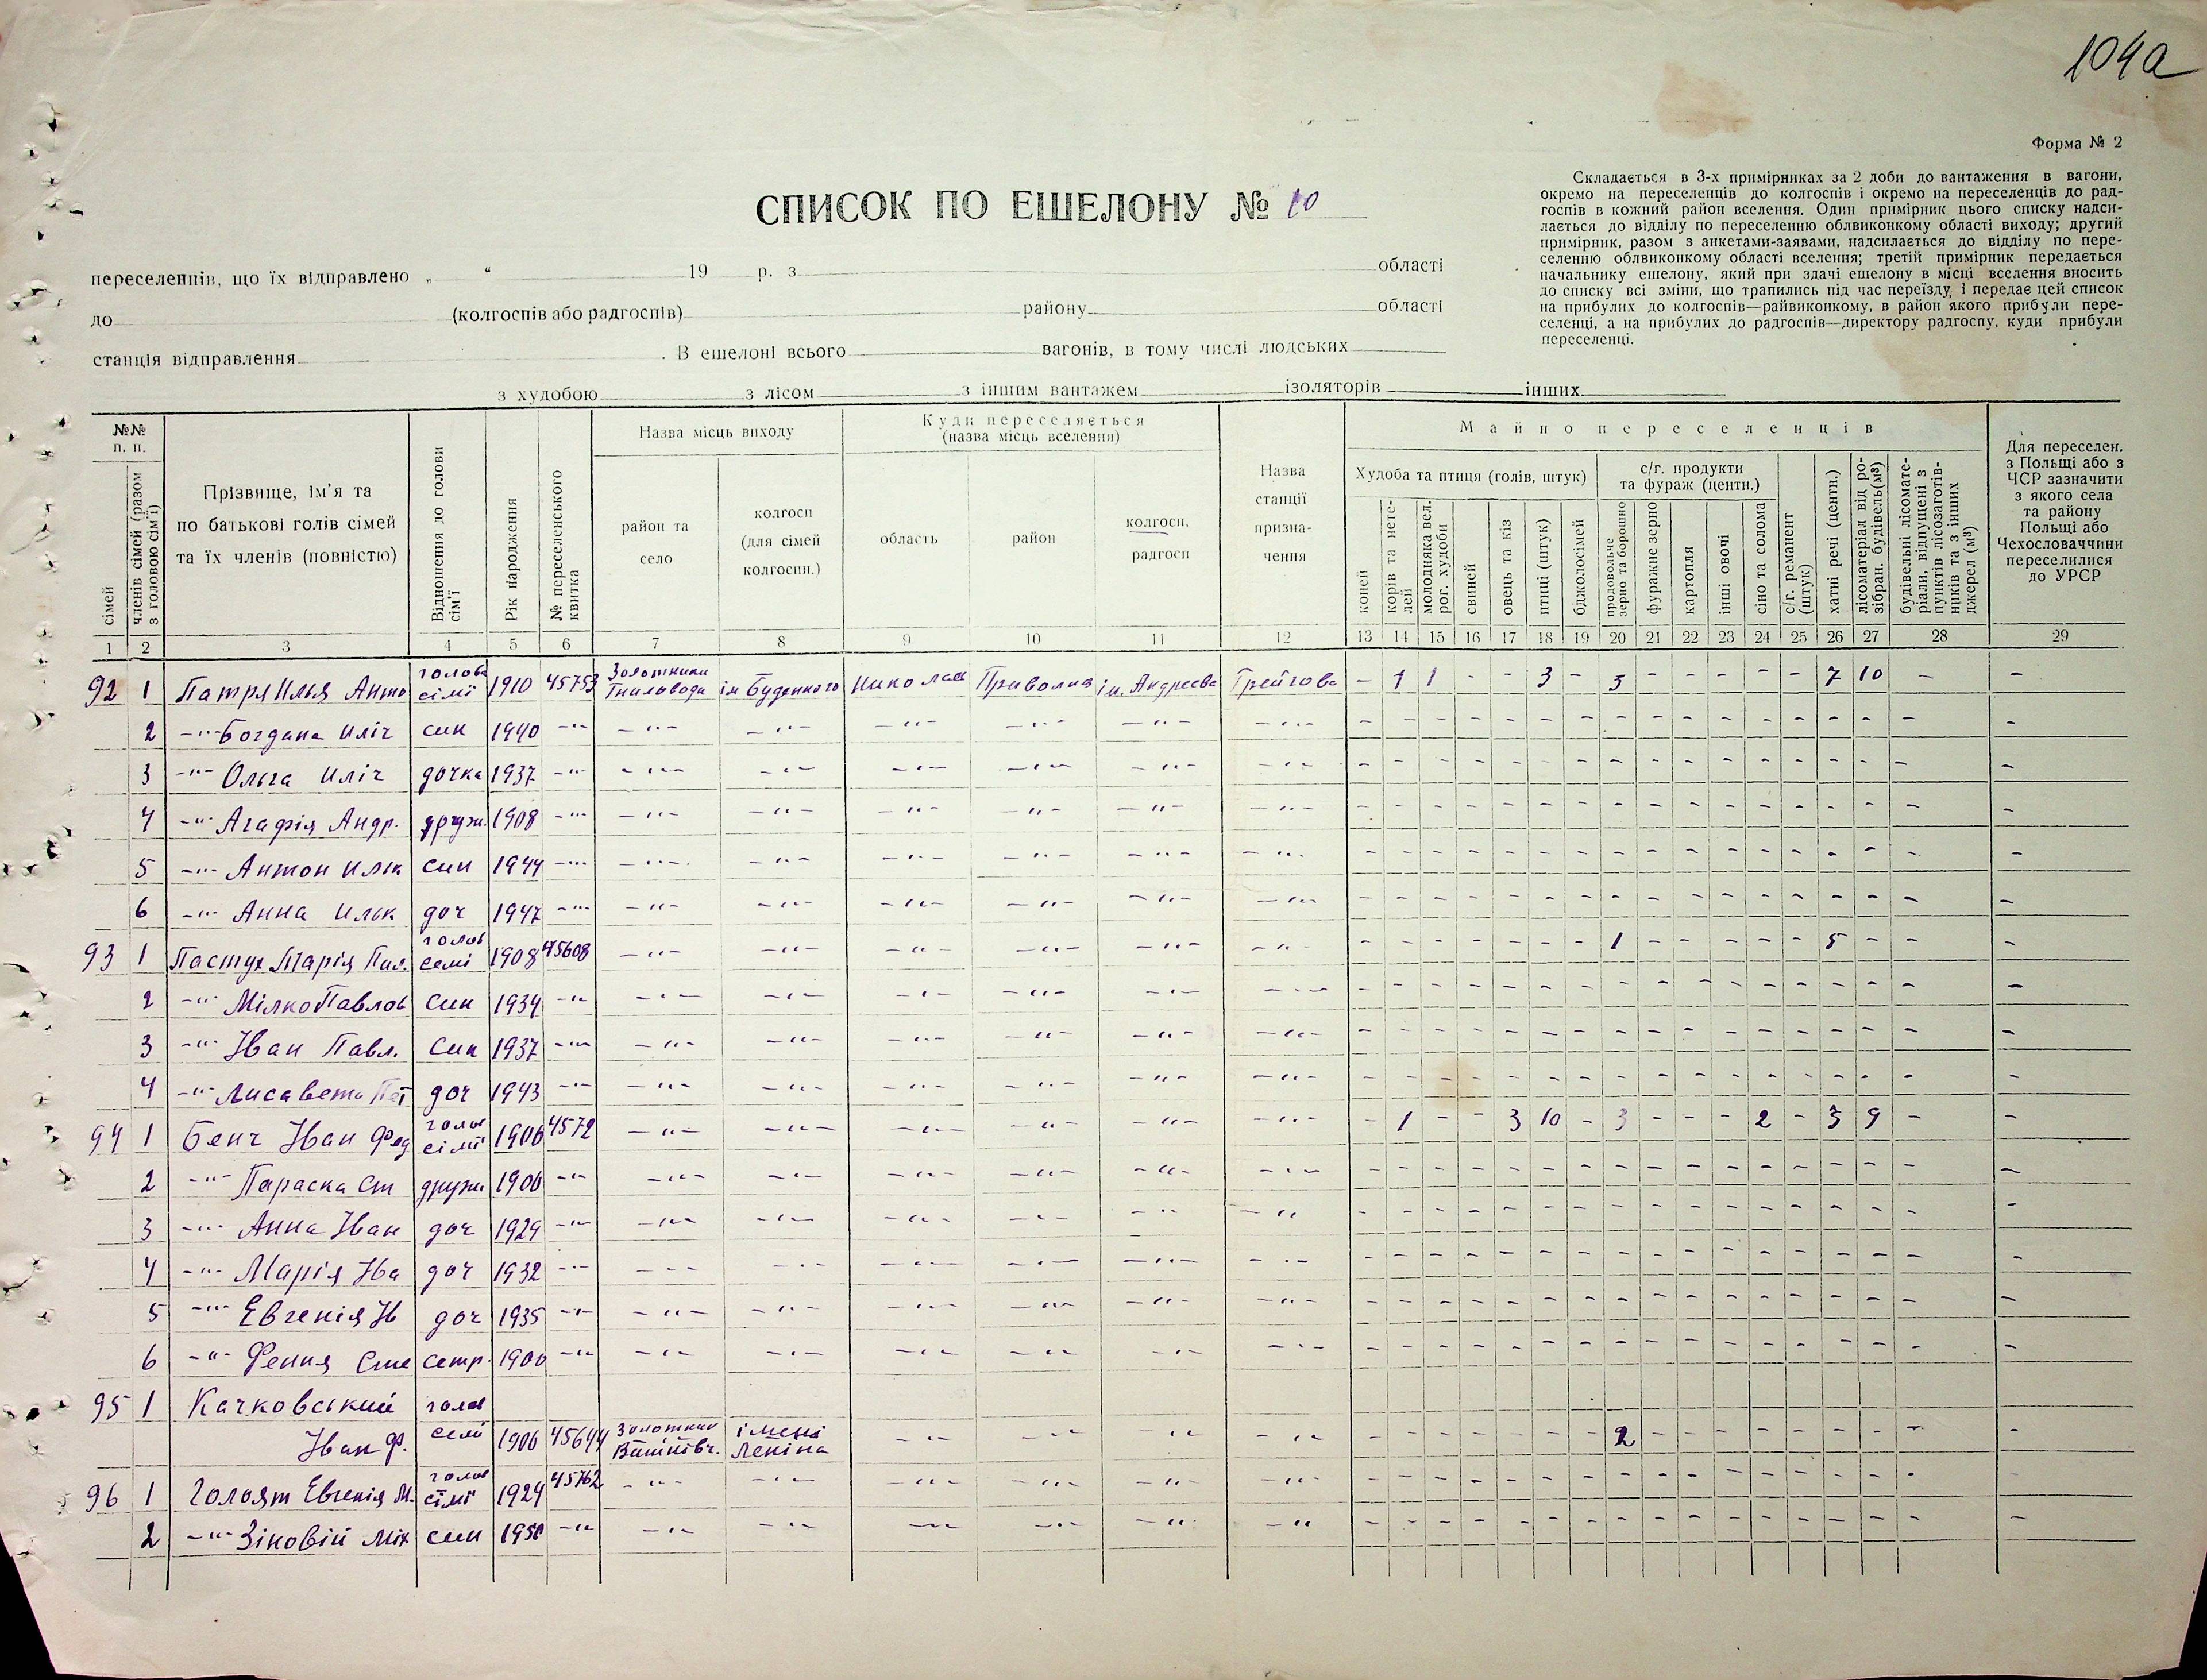 104а
Форма № 2
Складається в 3-х примірниках за 2 доби до вантаження в вагони,
окремо на переселенців до колгоспів і окремо на переселенців до рад-
госпів в кожний район вселення. Один примірник цього списку надси-
лається до відділу по переселенню облвиконкому області виходу; другий
примірник, разом з анкетами-заявами, надсилається до відділу по пере-
селенню облвиконкому області вселення; третій примірник передається
начальнику ешелону, який при здачі ешелону в місці вселення вносить
до списку всі зміни, що трапились під час переїзду, і передає цей список
на прибулих до колгоспів—райвиконкому, в район якого прибули пере-
селенці, а на прибулих до радгоспів—директору радгоспу, куди прибули
переселенці.
СПИСОК ПО ЕШЕЛОНУ № 10
переселенців, що їх відправлено „ “ 19 р. з області
до (колгоспів або радгоспів) району області
станція відправлення . В ешелоні всього вагонів, в тому числі людських
з худобою з лісом з іншим вантажем ізоляторів інших
№№ п. п.
сімей
членів сімей (разом з головою сім'ї)
Прізвище, ім'я та
по батькові голів сімей
та їх членів (повністю)
Відношення до голови сім'ї
Рік народження
№ переселенського квитка
Назва місць виходу
район та
село
колгосп
(для сімей
колгоспн.)
Куди переселяється
(назва місць вселення)
область
район
колгосп,
радгосп
Назва
станції
призна-
чення
Майно переселенців
Худоба та птиця (голів, штук)
коней
корів та нете-
лей
молодняка вел.
рог. худоби
свиней
овець та кіз
птиці (штук)
бджолосімей
с/г. продукти
та фураж (центн.)
продовольче
зерно та борошно
фуражне зерно
картопля
інші овочі
сіно та солома
с/г. реманент
(штук)
хатні речі (центн.)
лісоматеріал від ро-
зібран. будівель(м³)
будівельні лісомате-
ріали, відпущені з
пунктів лісозаготів-
ників та з інших
джерел (м³)
Для переселен.
з Польщі або з
ЧСР зазначити
з якого села
та району
Польщі або
Чехословаччини
переселилися
до УРСР
1 2 3 4 5 6 7 8 9 10 11 12 13 14 15 16 17 18 19 20 21 22 23 24 25 26 27 28 29
92 1 Патря Илья Анто голова сімї 1910 45753 Золотники Гниловоди ім Буденного Николаев Приволна ім. Андреева Трейгова - 1 1 - - 3 - 3 - - - - - 7 10 -
2 -"- Богдана Иліч син 1940 -"- -"- -"- -"- -"- -"- -"-
3 -"- Ольга Иліч дочка 1937 -"- -"- -"- -"- -"- -"- -"-
4 -"- Агафія Андр. друж. 1908 -"- -"- -"- -"- -"- -"- -"-
5 -"- Антон Ильк син 1944 -"- -"- -"- -"- -"- -"- -"-
6 -"- Анна Ильк доч 1947 -"- -"- -"- -"- -"- -"- -"-
93 1 Пастух Марія Пил. голов семі 1908 45608 -"- -"- -"- -"- -"- -"- - - - - - - - 1 - - - - - 5 - - -
2 -"- Мілко Павлов син 1934 -"- -"- -"- -"- -"- -"- -"-
3 -"- Іван Павл. син 1937 -"- -"- -"- -"- -"- -"- -"-
4 -"- Лисавета доч 1943 -"- -"- -"- -"- -"- -"- -"-
94 1 Бенч Іван Фед голов сімї 1906 4572 -"- -"- -"- -"- -"- -"- - 1 - - 3 10 - 3 - - - 2 - 3 9 - -
2 -"- Параска Ст друж. 1906 -"- -"- -"- -"- -"- -"- -"-
3 -"- Анна Іван доч 1929 -"- -"- -"- -"- -"- -"- -"-
4 -"- Марія Іва доч 1932 -"- -"- -"- -"- -"- -"- -"-
5 -"- Евгенія Ів доч 1935 -"- -"- -"- -"- -"- -"- -"-
6 -"- Фення Сте сетр. 1900 -"- -"- -"- -"- -"- -"- -"-
95 1 Качковський голов
Іван Ф. семі 1906 45644 Золотники імені Леніна -"- -"- -"- -"- - - - - - - - 2 - - - - - - - - -
96 1 Голоят Евгенія М. голов сімї 1924 45762 -"- -"- -"- -"- -"- -"-
2 -"- Зіновій Мих син 1950 -"- -"- -"- -"- -"- -"- -"-